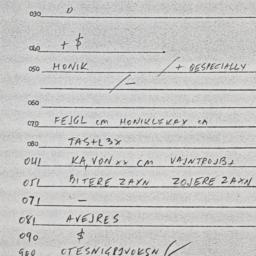 030 D
040 + $
050 HONIK / + GESPECIALLY
/—
060
070 FEJGL CM HONIKLEKAX CA
080 TAS+L3X
041 KA, VON XX CM VAJNTROJBJ
051 BITERE ZAXN ZOJERE ZAXN
071 —
081 AVEJRES
090 $
900